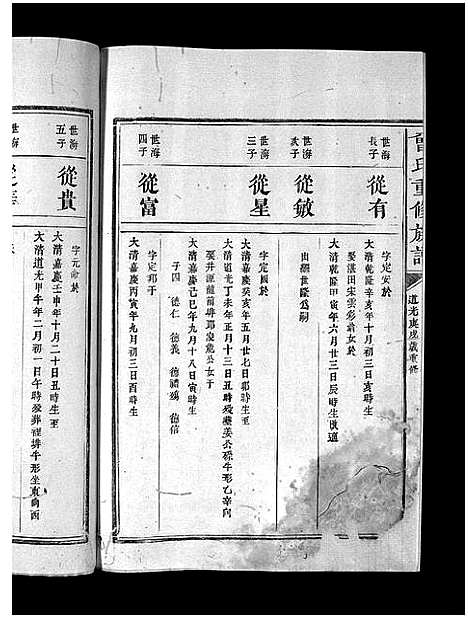 氏重修族譜
道光庚戌歲重修
世海
長子
從有
字定安於
大清乾隆辛亥年十月初三日亥時生
娶湛田宋雲彩公女於
世海
次子
從敏
大清乾隆甲寅年六月廿三日辰時生
出繼世隆爲嗣
世海
三子
從星
字定國於
大清嘉慶癸亥年五月廿七日卯時生至
大清道光丁未年正月十三日丑時歿葬姜公磜牛形乙辛向
娶井
大清嘉慶己巳年九月十八日寅時生
子四 德仁 德義 德禮 德信
世海
四子
從富
字定邦于
大清嘉慶丙寅年九月初三日酉時生
世海
五子
從貴
字元命於
大清嘉慶壬申年十月二十日丑時生至
大清道光甲午年二月初一日午時歿葬裡排牛形坐東向酉